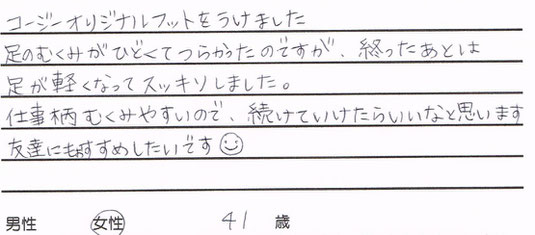 コージーオリジナルフットをうけました
足のむくみがひどくてつらかったのですが、終ったあとは
足が軽くなってスッキリしました。
仕事柄むくみやすいので、続けていけたらいいなと思います
友達にもおすすめしたいです☺
男性 女性 41 歳